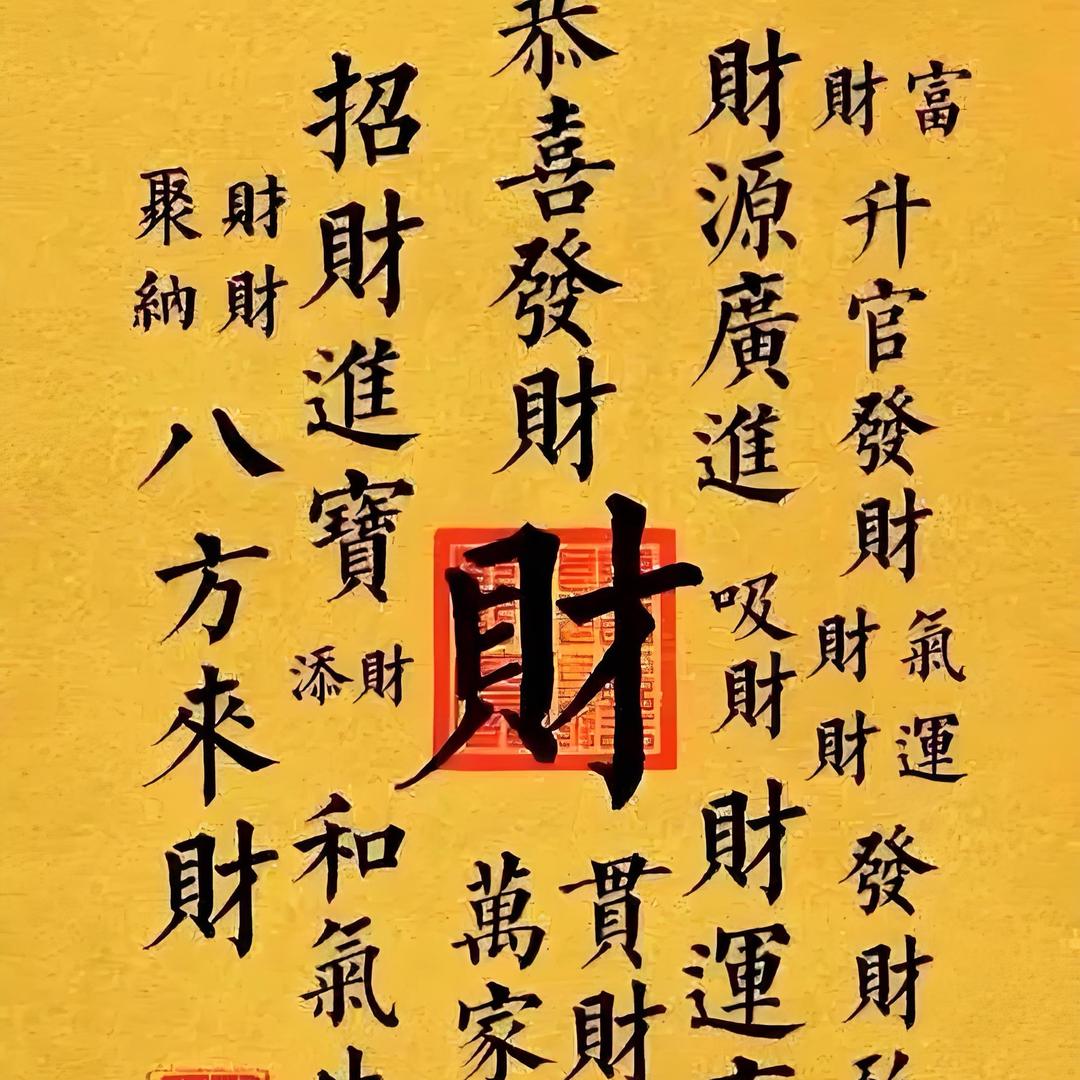 財富
升官發財
財氣
財運
發財
財源廣進
吸財
財運
恭喜發財
財
萬貫
家財
招財進寶
添財
和氣
聚財
納財
八方來財